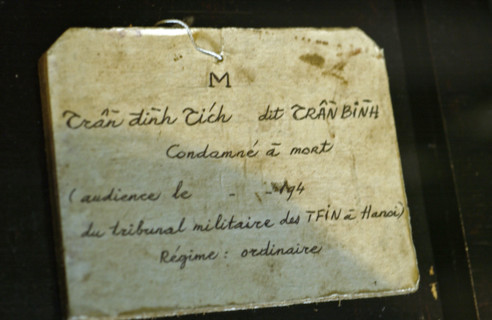 M
Trần Đình Tích dit TRẦN BÌNH
Condamné à mort
(audience le - - 194
du tribunal militaire des TFIN à Hanoi)
Régime : ordinaire